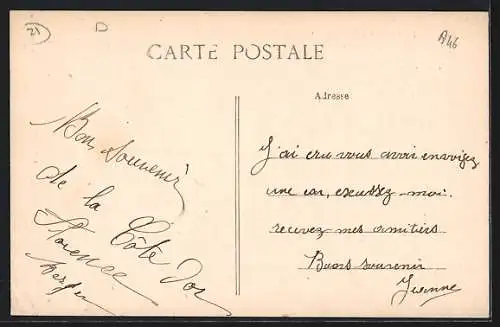 21
D
A46
CARTE POSTALE
Adresse
Bon Souvenir
de la Côte d'or
Florence
J'ai cru vous avoir envoyez
une car, excusez-moi.
recevez mes amitiers
Buons souvenir
Yvonne